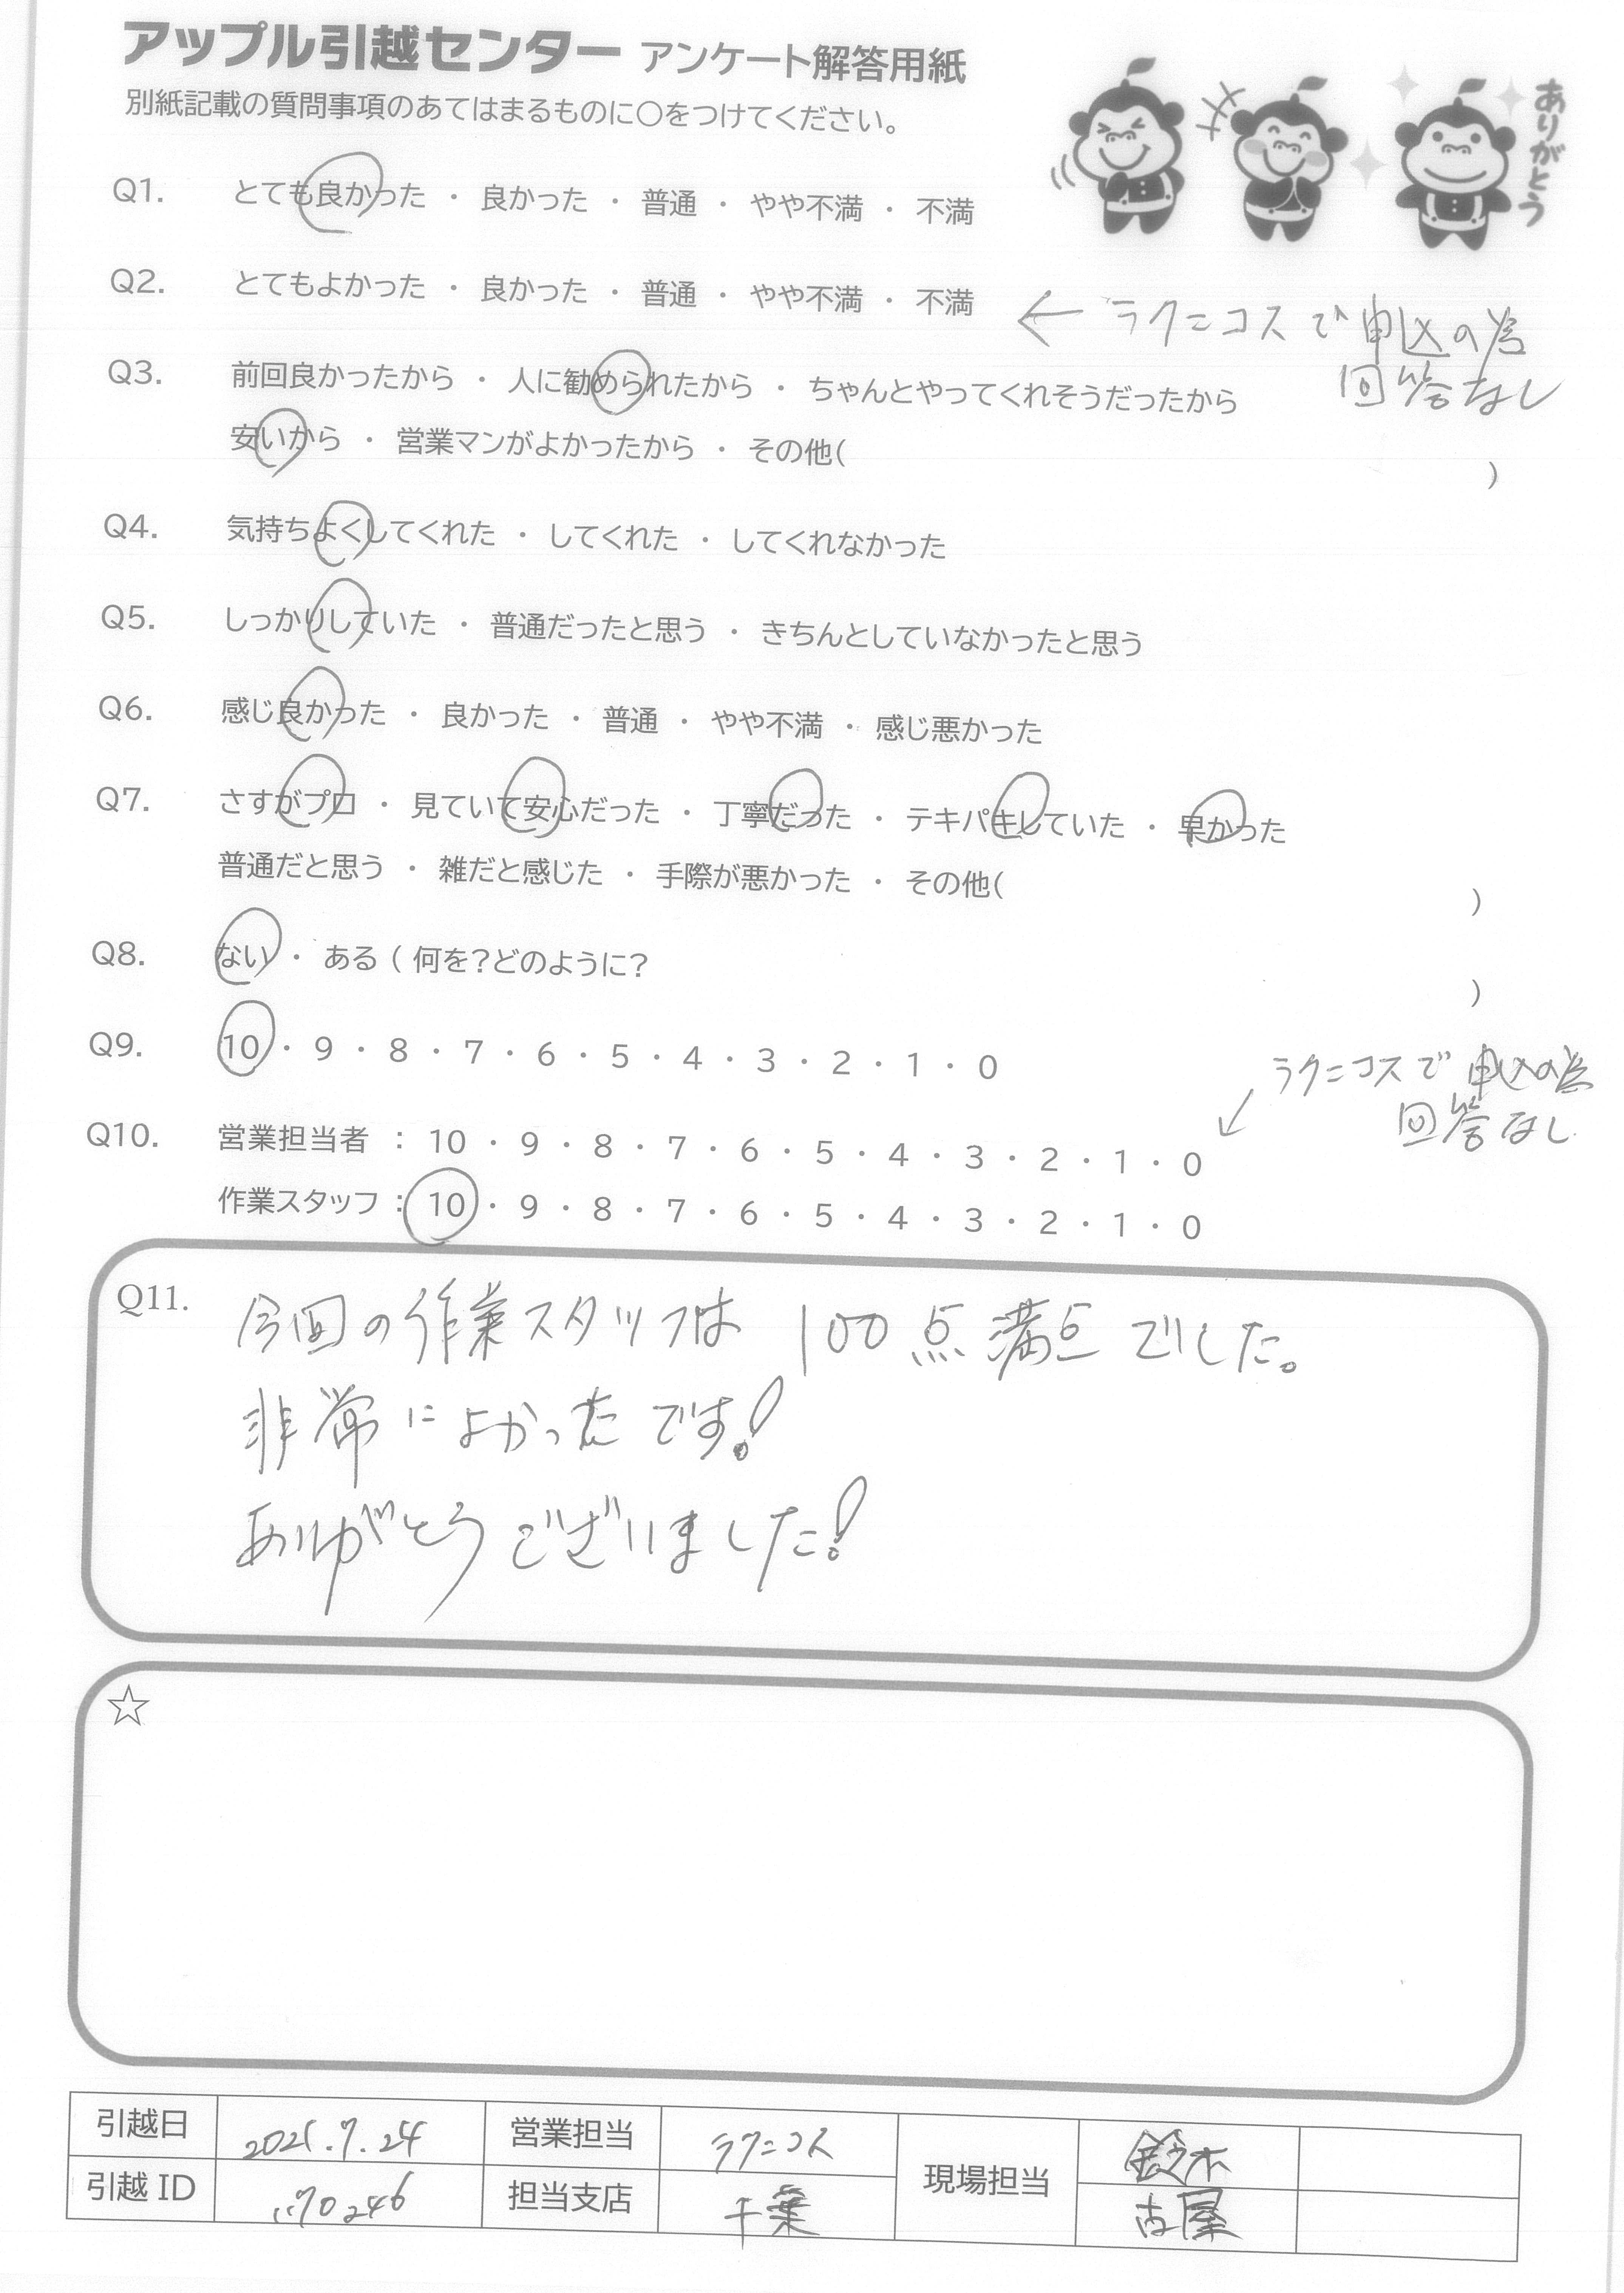 アップル引越センター アンケート解答用紙
別紙記載の質問事項のあてはまるものに○をつけてください。
ありがとう
Q1. とても良かった ・ 良かった ・ 普通 ・ やや不満 ・ 不満
Q2. とてもよかった ・ 良かった ・ 普通 ・ やや不満 ・ 不満
← ラクニコスで申込の為
回答なし
Q3. 前回良かったから ・ 人に勧められたから ・ ちゃんとやってくれそうだったから
安いから ・ 営業マンがよかったから ・ その他( )
Q4. 気持ちよくしてくれた ・ してくれた ・ してくれなかった
Q5. しっかりしていた ・ 普通だったと思う ・ きちんとしていなかったと思う
Q6. 感じ良かった ・ 良かった ・ 普通 ・ やや不満 ・ 感じ悪かった
Q7. さすがプロ ・ 見ていて安心だった ・ 丁寧だった ・ テキパキしていた ・ 早かった
普通だと思う ・ 雑だと感じた ・ 手際が悪かった ・ その他( )
Q8. ない ・ ある ( 何を?どのように? )
Q9. 10 ・ 9 ・ 8 ・ 7 ・ 6 ・ 5 ・ 4 ・ 3 ・ 2 ・ 1 ・ 0
ラクニコスで申込の為
回答なし
Q10. 営業担当者 : 10 ・ 9 ・ 8 ・ 7 ・ 6 ・ 5 ・ 4 ・ 3 ・ 2 ・ 1 ・ 0
作業スタッフ : 10 ・ 9 ・ 8 ・ 7 ・ 6 ・ 5 ・ 4 ・ 3 ・ 2 ・ 1 ・ 0
Q11. 今回の作業スタッフは 100点満点でした。
非常によかったです!
ありがとうございました!
☆
引越日 2025.7.24 営業担当 ラクニコス 現場担当 鈴木
引越 ID 担当支店 千葉 古屋